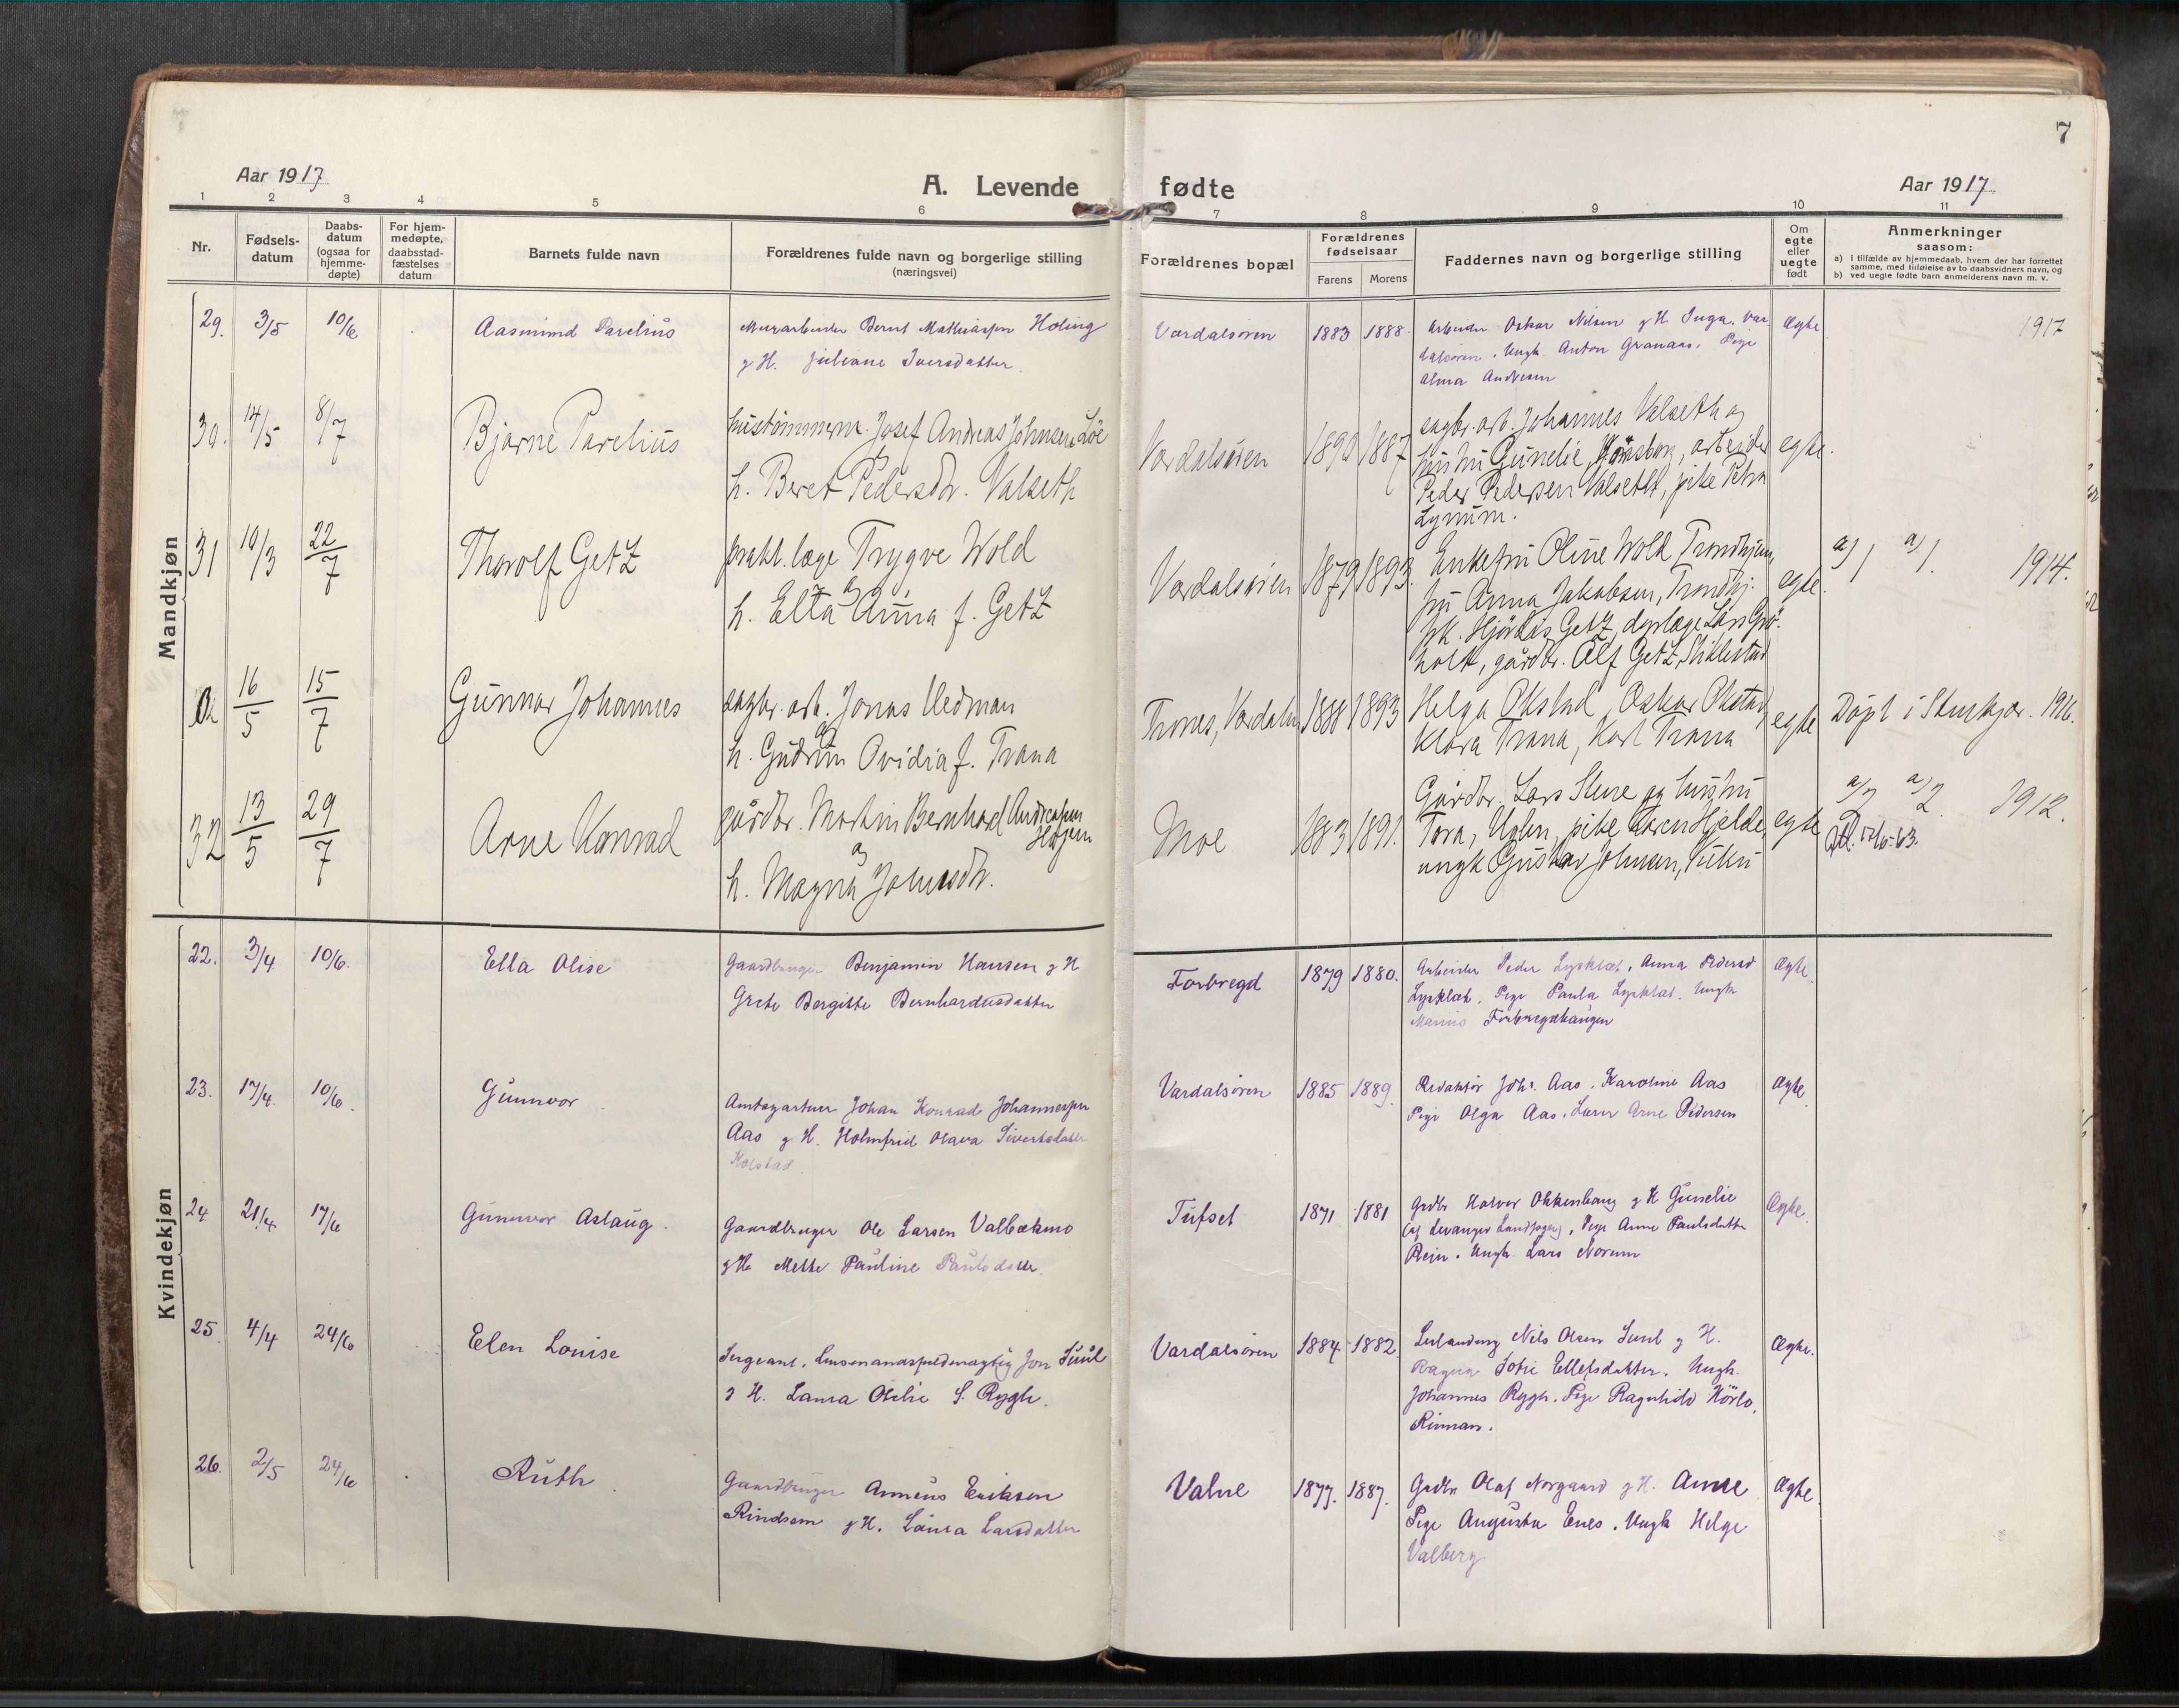 7
Aar 1917
A. Levende fødte
Aar 1917
1 2 3 4 5 6 7 8 9 10 11
Nr.
Fødsels-
datum
Daabs-
datum
(ogsaa for
hjemme-
døpte)
For hjem-
medøpte,
daabsstad-
fæstelses
datum
Barnets fulde navn
Forældrenes fulde navn og borgerlige stilling
(næringsvei)
Forældrenes bopæl
Forældrenes
fødselsaar
Farens Morens
Faddernes navn og borgerlige stilling
Om
egte
eller
uegte
født
Anmerkninger
saasom:
a) i tilfælde av hjemmedaab, hvem der har forrettet
samme, med tilføielse av to daabsvidners navn, og
b) ved uegte fødte barn anmelderens navn m. v.
Mandkjøn
29. 3/5 10/6 Aasmund Parelius
Murarbeider Bernt Mathiassen Holing
g H. Juliane Iversdatter
Værdalsøren 1883 1888
Arbeider Oskar Nilsen g H Inga, Vær-
dalsøren. Ungk. Anton Granaas, Pige
Alma Andresen
Ægte
1917
30. 14/5 8/7 Bjarne Parelius
hustømmerm. Josef Andreas Johnsen Løe
h. Beret Pedersdtr. Valseth
Værdalsøren 1890 1887
sagbr. arb. Johannes Valseth og
hustru Gunelie, arbeider
Peder Pedersen Valseth, pike Petra
Lynum.
egte.
31 10/3 22/7 Thorolf Getz
prakt. læge Trygve Wold
og
h. Elta Anna f. Getz
Værdalsøren 1879 1893.
Enkefru Oline Wold Trondhjem,
fru Anna Jakobsen, Trondhj.
frk. Hjördis Getz, dyrlæge Lars Grö-
holt, gårdbr. Alf Getz, Stiklestad
egte.
a) 1 a) 1. 1914.
16/5 15/7 Gunnar Johannes
sagbr. arb. Jonas Vedman
og
h. Gudrun Ovidia f. Trana
Trones, Værdalen 1888 1893
Helga Okstad, Oskar Okstad,
Klara Trana, Karl Trana
egte
Døpt i Stenkjær. 1916.
32 13/5 29/7 Arne Konrad
gårdbr. Martin Bernhard Andreassen
Hagen
og
h. Magna Johnsdtr.
Moe 1883 1891.
Gårdbr. Lars Slure og hustru
Tora, Uglen, pike Karen Hjelde,
ungk Gustav Johnsen,
egte
a) 2 a) 2. 1912.
Kvindekjøn
22. 3/4 10/6. Ella Olise
Gaardbruger Benjamin Hansen g H
Grete Bergitte Bernhardusdatter
Forbregd 1879 1880.
Arbeider Peder Lysklæt, Anna Pedersd
Lysklæt, Pige Paula Lysklæt, Ungk
Marius Forbregdshaugen
Ægte.
23. 17/4. 10/6. Gunnvor
Amtsgartner Johan Konrad Johannessen
Aas g H. Holmfrid Olava Sivertsdatter
Kolstad.
Værdalsøren 1885 1889.
Redaktør Johs. Aas. Karoline Aas
Pige Olga Aas, Lærer Arne Pedersen
Ægte
24 21/4. 17/6 Gunnvor Aslaug.
Gaardbruger Ole Larsen Valbækmo
g H. Mette Pauline Paulsdatter.
Tufset 1871 1881
Grdbr Halvor Okkenhaug g H Gunelie
(af Levanger Landsogn), Pige Anne Paulsdatter
Rein. Ungk. Lars Norum
Ægte.
25. 4/4 24/6 Elen Louise
Sergeant, Lensmandsfuldmægtig Jon Suul
g H. Laura Otelie f. Rygh.
Værdalsøren 1884 1882.
Nils Olsen Suul g H.
Ragna Sofie Ellefsdatter. Ungk.
Johannes Rygh. Pige Ragnhild
Rinnan.
Ægte.
26. 2/5 24/6 Ruth
Gaardbruger Annæus Eriksen
Rindsem g H. Laura Larsdatter
Valne 1877. 1887.
Grdbr Olaf Norgaard g H. Anne
Pige Augusta Enes. Ungk Helge
Valberg
Ægte